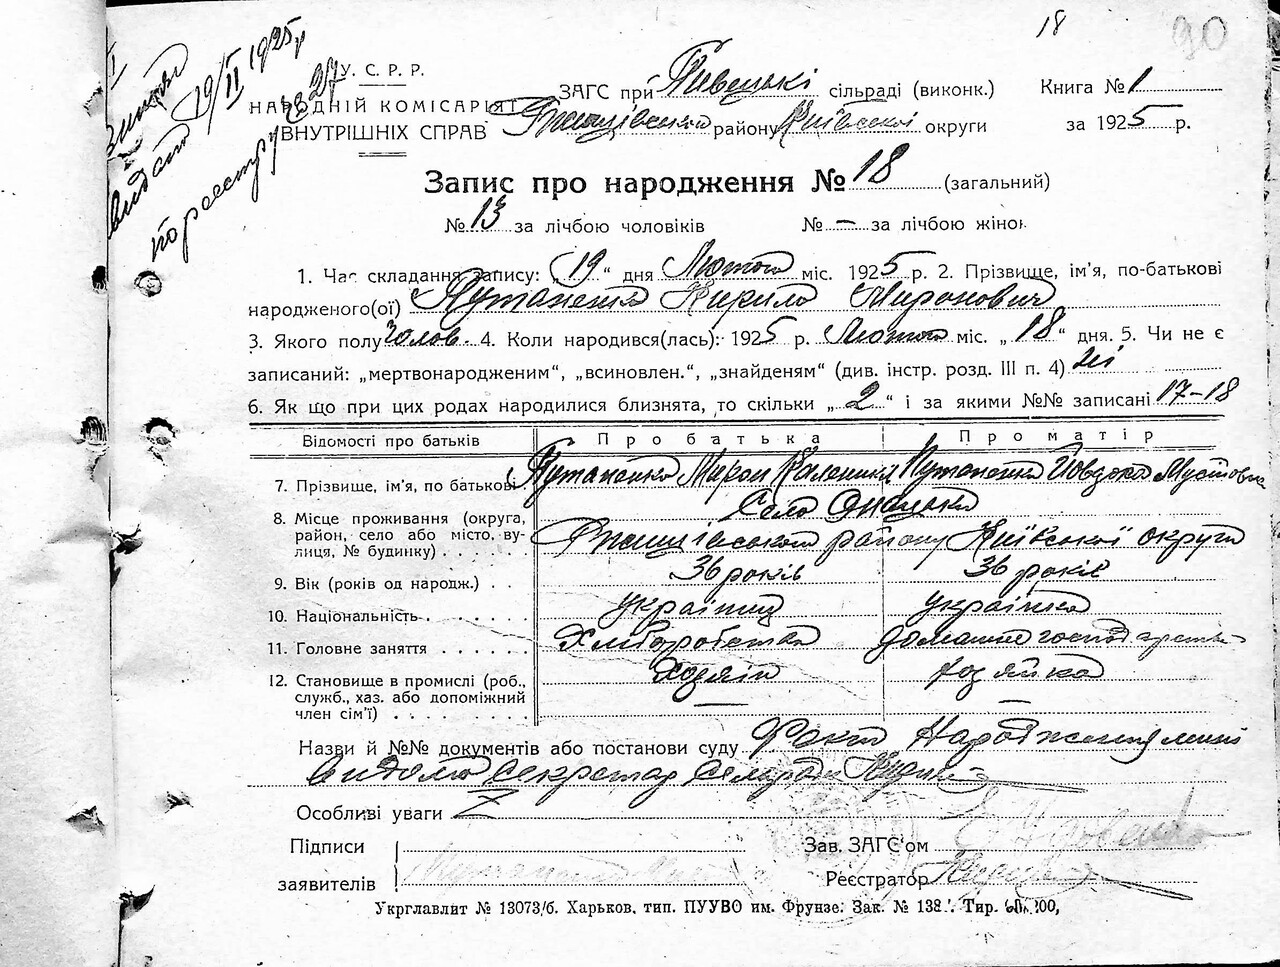 18
90
19/II 1925 р
по реестру № 27
У. С. Р. Р.
НАРОДНІЙ КОМІСАРІЯТ
ВНУТРІШНІХ СПРАВ
ЗАГС при сільраді (виконк.) Книга № 1
району Київської округи за 1925 р.
Запис про народження № 18 (загальний)
№ 13 за лічбою чоловіків № — за лічбою жінок
1. Час складання запису: „19“ дня Лютого міс. 1925 р. 2. Прізвище, ім'я, по-батькові
народженого(ої) Путаненко Кирило Миронович
3. Якого полу чолов. 4. Коли народився(лась): 1925 р. Лютого міс. „18“ дня. 5. Чи не є
записаний: „мертвонародженим“, „всиновлен.“, „знайденям“ (див. інстр. розд. III п. 4) ні
6. Як що при цих родах народилися близнята, то скільки „2“ і за якими №№ записані 17–18
Відомості про батьків Про батька Про матір
7. Прізвище, ім'я, по батькові Путаненко Мирон Путаненко
8. Місце проживання (округа, район, село або місто, вулиця, № будинку) Село
району Київської округи
9. Вік (років од народж.) 36 років 36 років
10. Національність українц українка
11. Головне заняття Хліборобства домашне господ
12. Становище в промислі (роб., служб., хаз. або допоміжний член сім'ї) Хозяїн хозяйка
Назви й №№ документів або постанови суду Факт Народження
секретар Сельради
Особливі уваги
Підписи Зав. ЗАГС'ом
заявителів Реєстратор
Укрглавлит № 13073/б. Харьков, тип. ПУУВО им. Фрунзе. Зак. № Тир.